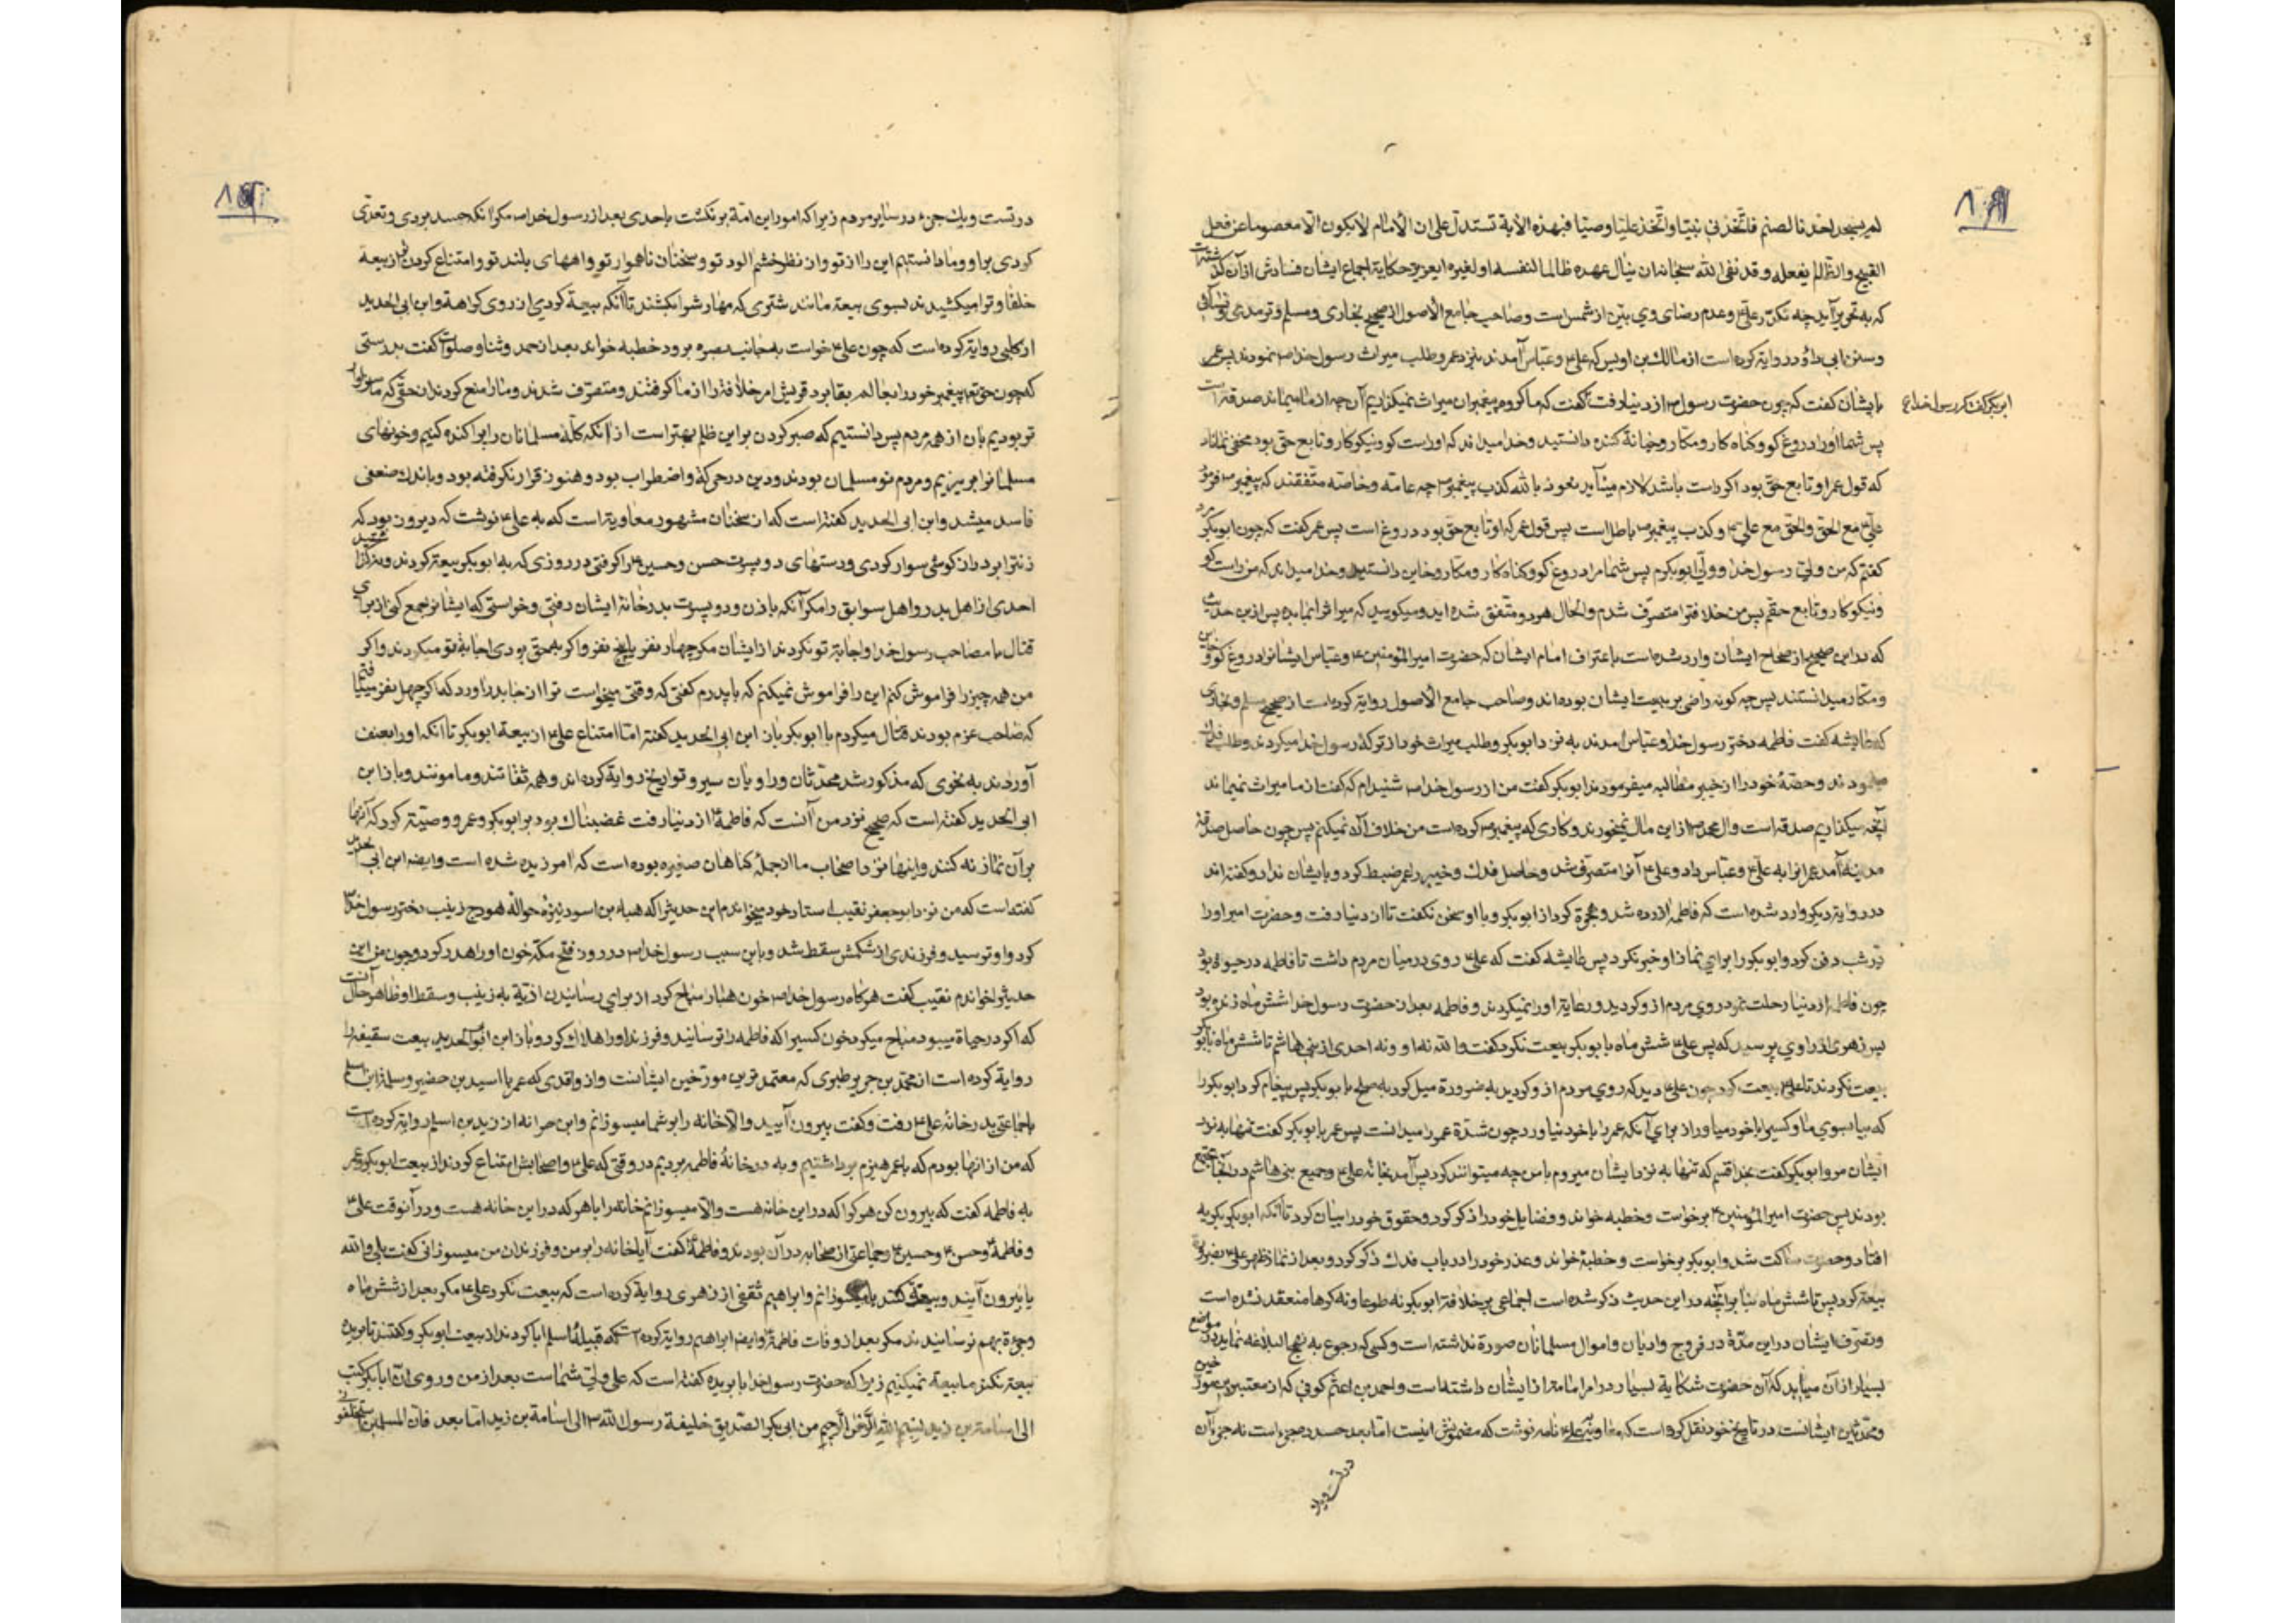 لم یسجد احدنا لصنم فاتّخذنی نبیّا واتّخذ علیّا وصیّا فبهذه الآیة تستدلّ علی ان الامام لایکون الّا معصوما عن فعل
القبیح والظّالم یفعله وقد نفی الله سبحانه ان ینال عهده ظالما لنفسه او لغیره ایعزیز حکایة اجماع ایشان فسادش از آن
که به تحریر آید چه تکدّر علی۴ وعدم رضای وی بیّن از شمس است وصاحب جامع الاصول از صحیح بخاری ومسلم وترمدی
وسنن ابی داود روایة کرده است از مالك بن اویس که علی۴ وعباس آمدند بنزد عمر وطلب میراث رسول خدا نمودند پس عمر
بایشان کفت که چون حضرت رسول از دنیا رفت کفت که ما کروه پیغمبران میراث نمیکذاریم آن چه از ما میماند صدقه است
ابوبکر کفت که رسول خدا
پس شما او را دروغ کو وکناه کار ومکّار وخیانة کننده دانستید وخدا میداند که او راست کو ونیکوکار وتابع حق بود مخفی نماناد
که قول عمر او تابع حق بود اکر راست باشد لازم میآید نعوذ بالله کذب پیغمبر چه عامّه وخاصّه متّفقند که پیغمبر فرمود
علی مع الحق والحق مع علی وکذب پیغمبر باطل است پس قول عمر که او تابع حق بود دروغ است پس عمر کفت که چون ابوبکر
کفتم که من ولیّ رسول خدا وولیّ ابوبکرم پس شما مرا دروغ کو وکناه کار ومکار وخاین دانستید وخدا میداند که من راست کو
ونیکوکار وتابع حقّم پس من خلافة را متصرّف شدم والحال هر دو متّفق شده اید ومیکویید که میراث را بما بده پس از این حدیث
که در این صحیح از صحاح ایشان وارد شده است باعتراف امام ایشان که حضرت امیر المؤمنین۴ وعباس ایشانرا دروغ کو
ومکار میدانستند پس چه کونه راضی بر بیعت ایشان بوده اند وصاحب جامع الاصول روایة کرده است از صحیح مسلم وبخاری
که عایشه کفت فاطمه دختر رسول خدا وعباس آمدند به نزد ابوبکر وطلب میراث خود از ترکهٔ رسول خدا میکردند وطلب فدك
وحصّهٔ خود را از خیبر مطالبه میفرمودند ابوبکر کفت من از رسول خدا شنیدم که کفت از ما میراث نمیماند
آنچه میکذاریم صدقه است وال محمد از این مال میخورند وکاری که پیغمبر کرده است من خلاف آن نمیکنم پس چون حاصل صدقهٔ
مدینه آمد عمر انرا به علی۴ وعباس داد وعلی۴ آنرا متصرّف شد وحاصل فدك وخیبر را عمر ضبط کرد وبایشان نداد وکفته اند
در روایة دیکر وارد شده است که فاطمه آزرده شد وهجرة کرد از ابوبکر وبا او سخن نکفت تا از دنیا رفت وحضرت امیر او را
در شب دفن کرد وابوبکر را برای نماز او خبر نکرد پس عایشه کفت که علی۴ روی در میان مردم داشت تا فاطمه در حیوة بود
چون فاطمه از دنیا رحلت نمود روی مردم از او کردید ورعایة او را نمیکردند وفاطمه بعد از حضرت رسول خدا شش ماه زنده بود
پس زهری از راوی پرسید که پس علی۴ شش ماه با ابوبکر بیعت نکرد کفت والله نه او ونه احدی از بنی هاشم تا شش ماه با ابوبکر
بیعت نکردند تا علی۴ بیعت کرد چون علی۴ دید که روی مردم از او کردید به ضرورة میل کرد به صلح با ابوبکر پس پیغام کرد ابوبکر را
که بیا بسوی ما وکسی را با خود میاور از برای آنکه عمر را با خود نیاورد چون شدّة عمر را میدانست پس عمر با ابوبکر کفت تنها به نزد
ایشان مرو ابوبکر کفت بخدا قسم که تنها به نزد ایشان میروم با من چه میتوانند کرد پس آمد بخانه علی۴ وجمیع بنی هاشم در آنجا مجتمع
بودند پس حضرت امیر المؤمنین۴ برخواست وخطبه خواند وفضایل خود را ذکر کرد وحقوق خود را بیان کرد تا آنکه ابوبکر بکریه
افتاد وحضرت ساکت شد وابوبکر برخواست وخطبهٔ خواند وعذر خود را در باب فدك ذکر کرد وبعد از نماز ظهر علی۴
بیعة کرد پس تا شش ماه بنا بر آنچه در این حدیث ذکر شده است اجماعی بر خلافة ابوبکر نه طوعا ونه کرها منعقد نشده است
وتصرّف ایشان در این مدّة در فروج وادیان واموال مسلمانان صورة نداشته است وکسی که رجوع به نهج البلاغه نماید در مواضع
بسیار از آن میآبد که آن حضرت شکایة بسیار در امر امامة از ایشان داشته است واحمد بن اعثم کوفی که از معتبرین
ومحدّثین ایشانست در تاریخ خود نقل کرده است که معاویه بعلی۴ نامه نوشت که مضمونش اینست اما بعد حسد ده جزء است نه جزء آن
در تست ویك
در تست ویك جزء در سایر مردم زیرا که امور این امّة برنکشت باحدی بعد از رسول خدا مکر آنکه حسد بردی وتعدّی
کردی بر او وما دانستیم این را از تو واز نظر خشم الود تو وسخنان ناهموار تو واههای بلند تو وامتناع کردن تو از بیعة
خلفا وترا میکشیدند بسوی بیعة مانند شتری که مهارش را بکشند تا آنکه بیعة کردی از روی کراهة وابن ابی الحدید
از کلبی روایة کرده است که چون علی۴ خواست به جانب بصره برود خطبه خواند بعد از حمد وثنا وصلوات کفت بدرستی
که چون حق تعه پیغمبر خود را بعالم بقا برد قریش امر خلافة را از ما کرفتند ومتصرّف شدند وما را منع کردند از حقّی که ما سزاوار
تر بودیم بان از همه مردم پس دانستیم که صبر کردن بر این ظلم بهتر است از آنکه کلمهٔ مسلمانان را پراکنده کنیم وخونهای
مسلمانرا بریزیم ومردم نو مسلمان بودند ودین در حرکة واضطراب بود وهنوز قرار نکرفته بود وباندك ضعفی
فاسد میشد وابن ابی الحدید کفته است که از سخنان مشهور معاویه است که به علی۴ نوشت که دیروز بود که
زنترا بر دراز کوشی سوار کردی ودستهای دو پسرت حسن وحسین را کرفتی در روزی که به ابوبکر بیعة کردند
احدی از اهل بدر واهل سوابق را مکر آنکه با زن ودو پسرت بدر خانهٔ ایشان رفتی وخواستی که ایشانرا جمع کنی از برای
قتال با مصاحب رسول خدا واجابة تو نکردند از ایشان مکر چهار نفر یا پنج نفر واکر بر حق بودی اجابة تو میکردند واکر
من همه چیز را فراموش کنم این را فراموش نمیکنم که با پدرم کفتی که وقتی میخواست ترا از جا بدر آورد که اکر چهل نفر مییافتم
که صاحب عزم بودند قتال میکردم با ابوبکر باز ابن ابی الحدید کفته امّا امتناع علی۴ از بیعة ابوبکر تا آنکه او را بعنف
آوردند به نحوی که مذکور شد محدّثان وراویان سیر وتواریخ روایة کرده اند وهمه ثقاتند ومامونند وباز ابن
ابی الحدید کفته است که صحیح نزد من آنست که فاطمه از دنیا رفت غضبناك بود بر ابوبکر وعمر ووصیّة کرد که آنها
بر آن نماز نه کنند واینها نزد اصحاب ما از جملهٔ کناهان صغیره بوده است که آمرزیده شده است وایضه ابن ابی الحدید
کفته است که من نزد ابوجعفر نقیب استاد خود میخواندم این حدیث را که هبار بن اسود نیزهٔ حوالهٔ هودج زینب دختر رسول خدا
کرد واو ترسید وفرزندی از شکمش سقط شد وباین سبب رسول خدا در روز فتح مکّه خون او را هدر کرد وچون من این
حدیث را خواندم نقیب کفت هر کاه رسول خدا خون هبار را مباح کرد از برای رسانیدن اذیّة به زینب وسقط او ظاهر حال آنست
که اکر در حیاة میبود مباح میکرد خون کسیرا که فاطمه را ترسانید وفرزند او را هلاك کرد وباز ابن ابی الحدید بیعت سقیفه را
روایة کرده است از محمّد بن جریر طبری که معتمد ترین مورّخین ایشانست واز واقدی که عمر با اسید بن حضیر وسلمة ابن اسلم
با جماعتی بدر خانهٔ علی۴ رفت وکفت بیرون آیید والّا خانه را بر شما میسوزانم وابن حرابه از زید بن اسلم روایة کرده است
که من از انها بودم که با عمر هیزم برداشتیم وبه در خانهٔ فاطمه بردیم در وقتی که علی۴ واصحابش امتناع کردند از بیعت ابوبکر وعمر
به فاطمه کفت که بیرون کن هر کرا که در این خانه هست والّا میسوزانم خانه را با هر که در این خانه هست ودر آنوقت علی۴
وفاطمه وحسن وحسین۴ وجماعتی از صحابه در آن بودند وفاطمه کفت آیا خانه را بر من وفرزندان من میسوزانی کفت بلی والله
یا بیرون آیند وبیعة کنند یا میسوزانم وابراهیم ثقفی از زهری روایة کرده است که بیعت نکرد علی۴ مکر بعد از شش ماه
وجرءة بهم نرسانیدند مکر بعد از وفات فاطمه وایضه ابراهیم روایة کرده است که قبیلهٔ اسلم ابا کردند از بیعت ابوبکر وکفتند تا بریده
بیعة نکند ما بیعة نمیکنیم زیرا که حضرت رسول خدا با بریده کفته است که علی ولیّ شماست بعد از من وروی انّ ابابکر کتب
الی اسامة بن زید بسم الله الرّحمن الرّحیم من ابی بکر الصّدیق خلیفة رسول الله الی اسامة بن زید امّا بعد فانّ المسلمین